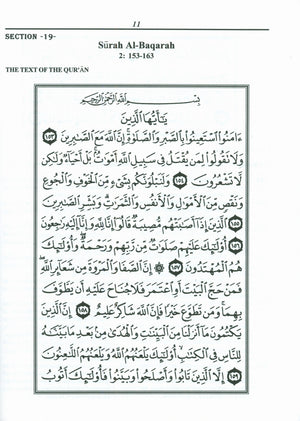 11
SECTION -19-
Sūrah Al-Baqarah
2: 153-163
THE TEXT OF THE QUR'ĀN
بِسْمِ اللَّهِ الرَّحْمَٰنِ الرَّحِيمِ
يَٰٓأَيُّهَا الَّذِينَ
ءَامَنُوا اسْتَعِينُوا بِالصَّبْرِ وَالصَّلَوٰةِ إِنَّ اللَّهَ مَعَ الصَّٰبِرِينَ ١٥٣
وَلَا تَقُولُوا لِمَن يُقْتَلُ فِي سَبِيلِ اللَّهِ أَمْوَٰتٌ بَلْ أَحْيَآءٌ وَلَٰكِن
لَّا تَشْعُرُونَ ١٥٤ وَلَنَبْلُوَنَّكُم بِشَيْءٍ مِّنَ الْخَوْفِ وَالْجُوعِ
وَنَقْصٍ مِّنَ الْأَمْوَٰلِ وَالْأَنفُسِ وَالثَّمَرَٰتِ وَبَشِّرِ الصَّٰبِرِينَ
١٥٥ الَّذِينَ إِذَآ أَصَٰبَتْهُم مُّصِيبَةٌ قَالُوٓا إِنَّا لِلَّهِ وَإِنَّآ إِلَيْهِ رَٰجِعُونَ
١٥٦ أُولَٰٓئِكَ عَلَيْهِمْ صَلَوَٰتٌ مِّن رَّبِّهِمْ وَرَحْمَةٌ وَأُولَٰٓئِكَ
هُمُ الْمُهْتَدُونَ ١٥٧ ۞ إِنَّ الصَّفَا وَالْمَرْوَةَ مِن شَعَآئِرِ اللَّهِ
فَمَنْ حَجَّ الْبَيْتَ أَوِ اعْتَمَرَ فَلَا جُنَاحَ عَلَيْهِ أَن يَطَّوَّفَ
بِهِمَا وَمَن تَطَوَّعَ خَيْرًا فَإِنَّ اللَّهَ شَاكِرٌ عَلِيمٌ ١٥٨ إِنَّ الَّذِينَ
يَكْتُمُونَ مَآ أَنزَلْنَا مِنَ الْبَيِّنَٰتِ وَالْهُدَىٰ مِن بَعْدِ مَا بَيَّنَّٰهُ
لِلنَّاسِ فِي الْكِتَٰبِ أُولَٰٓئِكَ يَلْعَنُهُمُ اللَّهُ وَيَلْعَنُهُمُ اللَّٰعِنُونَ
١٥٩ إِلَّا الَّذِينَ تَابُوا وَأَصْلَحُوا وَبَيَّنُوا فَأُولَٰٓئِكَ أَتُوبُ